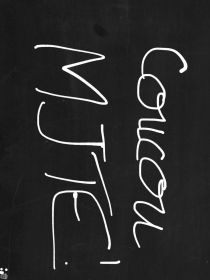 Coucou
MJTE!